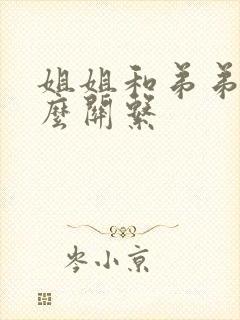 姐姐和弟弟
麼關繫
岑小京